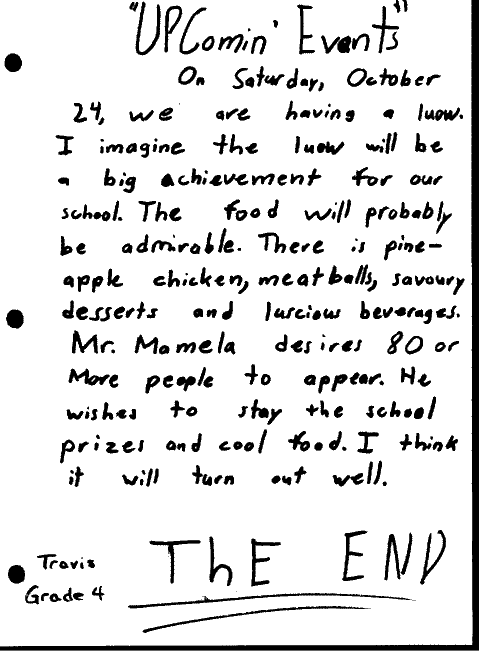 "UPComin' Events"
On Saturday, October
24, we are having a luow.
I imagine the luow will be
a big achievement for our
school. The food will probably
be admirable. There is pine-
apple chicken, meatballs, savoury
desserts and luscious beverages.
Mr. Mamela desires 80 or
More people to appear. He
wishes to stay the school
prizes and cool food. I think
it will turn out well.
ThE END
Travis
Grade 4